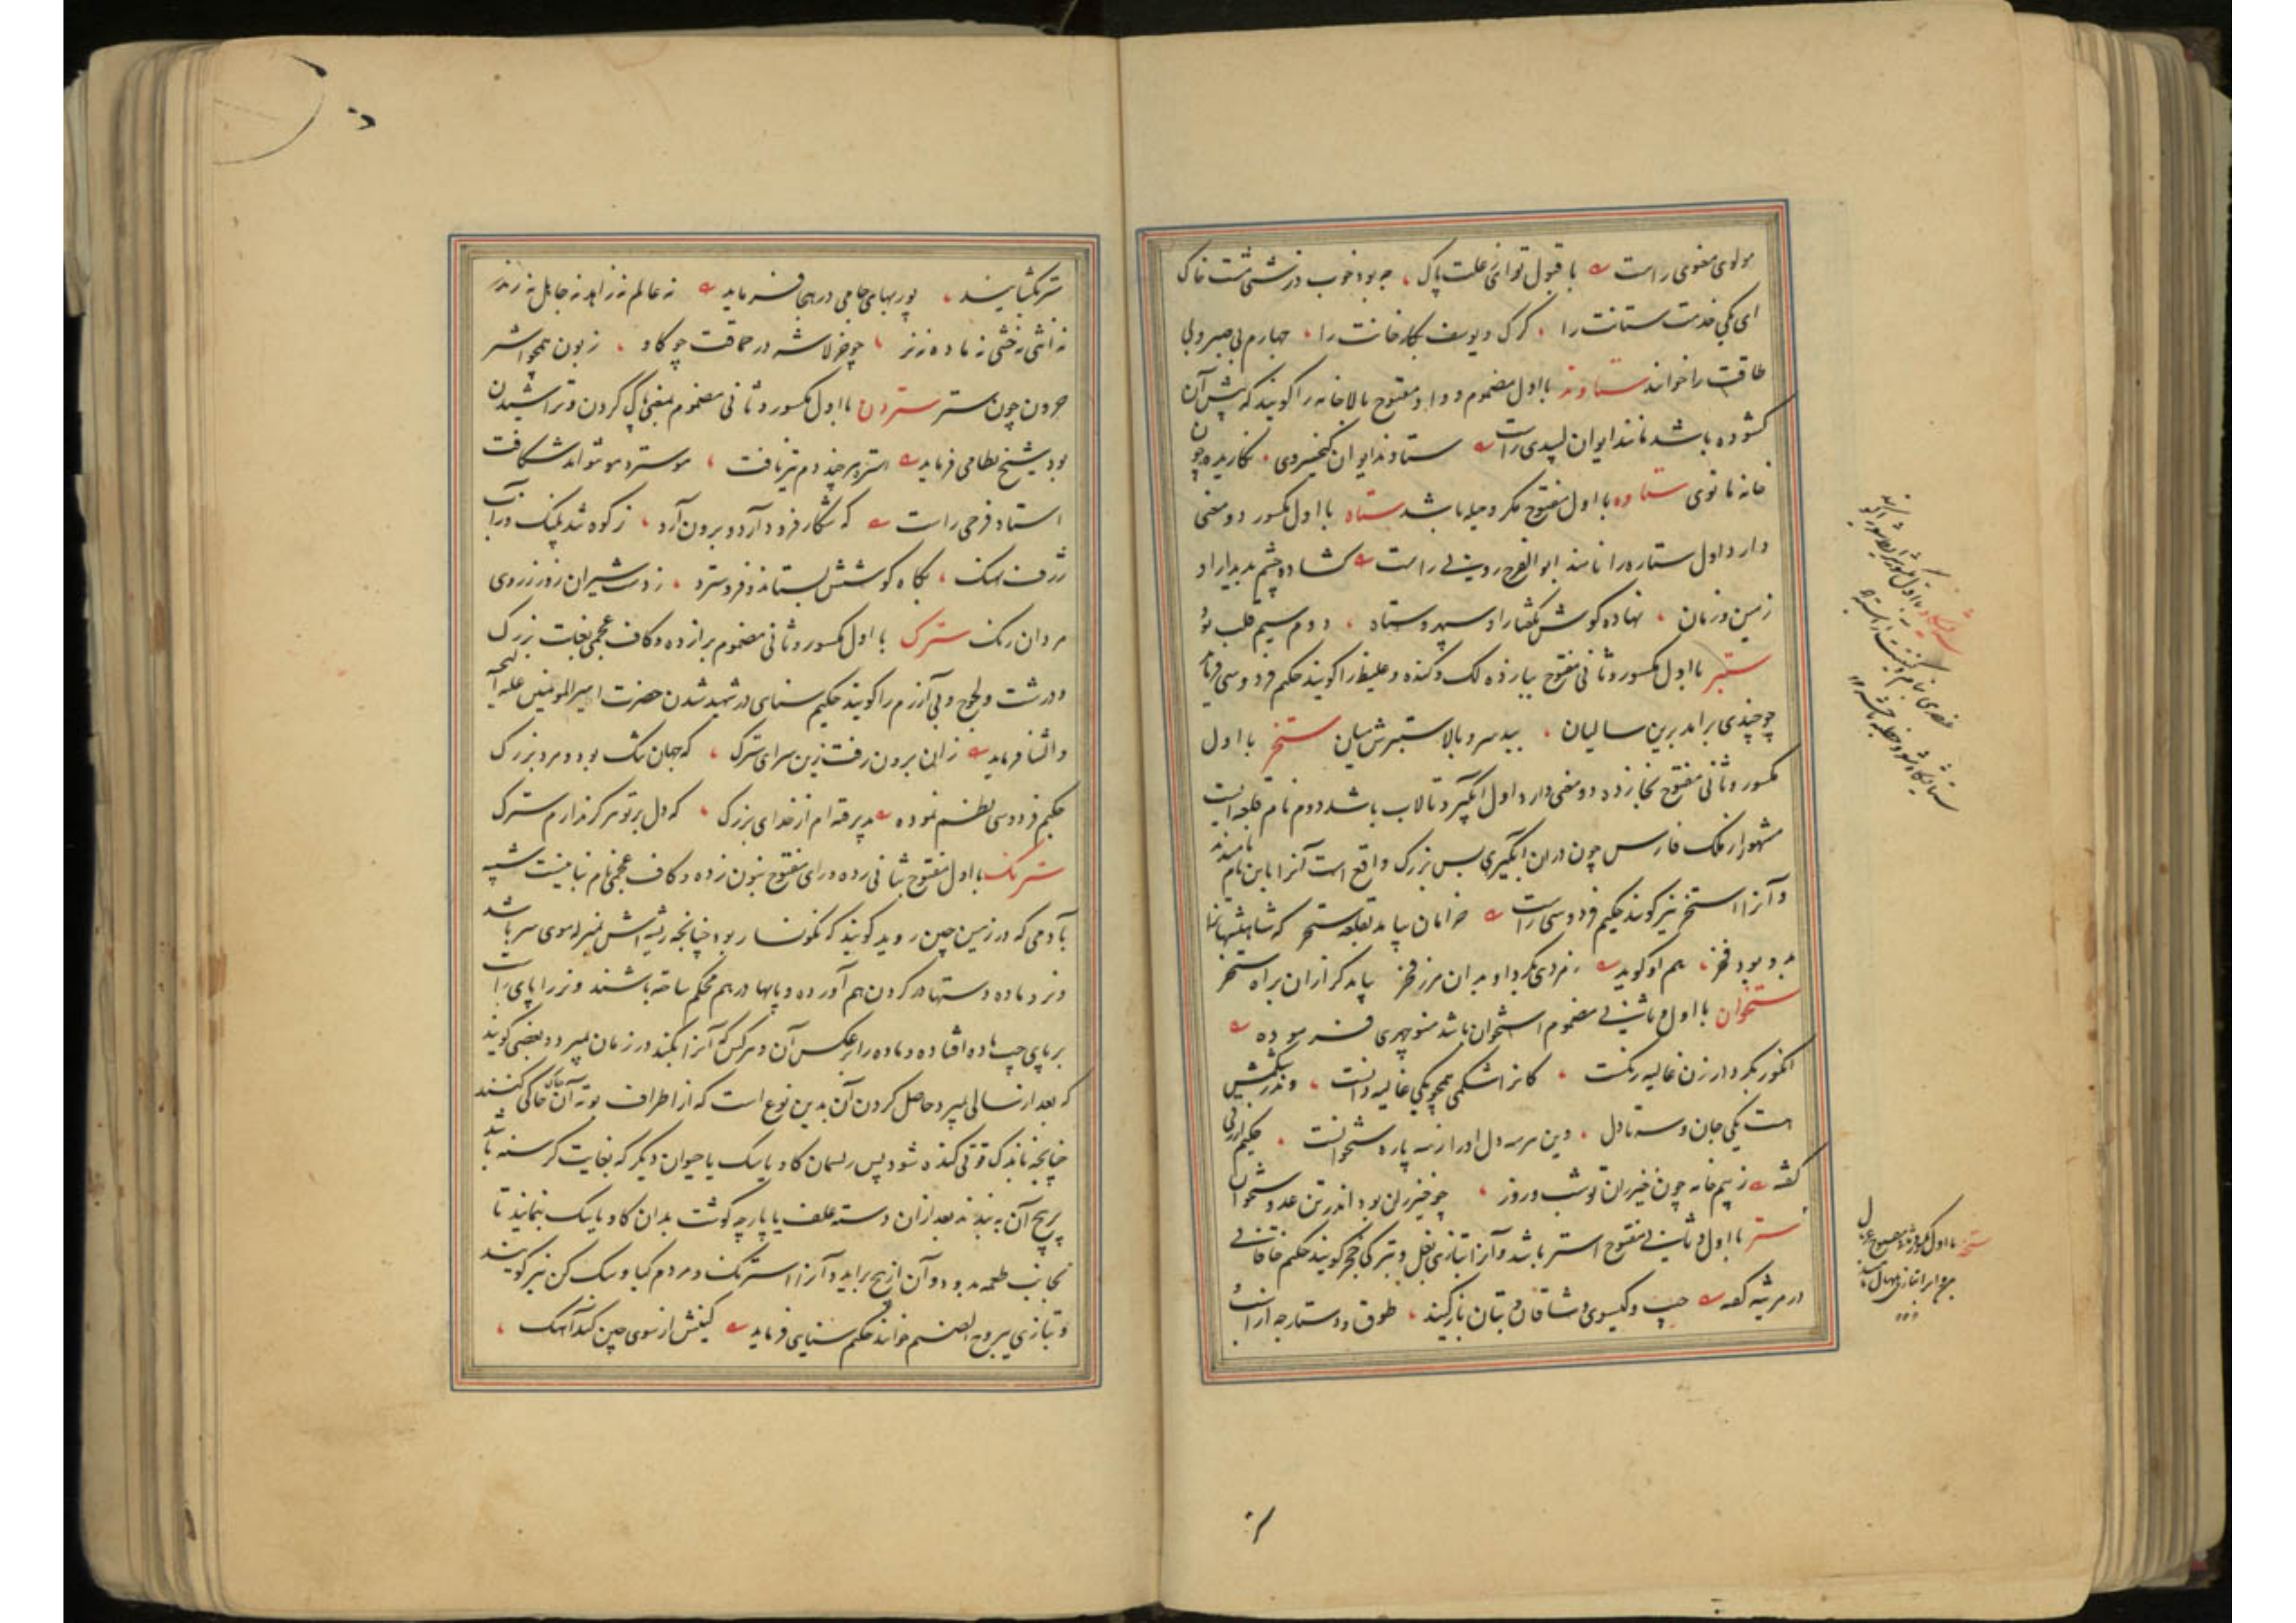 مولوی معنوی راست با قبول تو ای ز علت پاک چه بود خوب و زشتی مشت خاک
ای یکی خدمت ستانت را گرگ و یوسف نگارخانت را چهارم بی صبر و بی
طاقت را خوانند ستاوند با اول مضموم و واو مفتوح بالاخانه را گویند که پیش آن
کشوده باشد مانند ایوان لبیبی راست ستاوند ایوان کیخسروی نگاریده چون
خانه مانوی ستاوه با اول مفتوح مکر و حیله باشد ستاه با اول مکسور دو معنی
دارد اول ستاره را نامند ابو الفرج رونی راست کشاده چشم بدیدار او
زمین و زمان نهاده گوش بگفتار او سپهر و ستاه دوم سیم قلب بود
ستبر با اول مکسور و ثانی مفتوح ببا زده لک و گنده و غلیظ را گویند حکیم فردوسی فرماید
چو چندی برآمد برین سالیان ببد سرو بالا ستبرش میان ستخر با اول
مکسور و ثانی مفتوح بخا زده دو معنی دارد اول آبگیر و تالاب باشد دوم نام قلعه ایست
مشهور از ملک فارس چون در ان آبگیری بس بزرگ واقع است آنرا باین نام نامیدند
و آنرا استخر نیز گویند حکیم فردوسی راست خرامان بیامد بقلعه ستخر که شاهنشهانرا
بدو بود فخر هم او گوید
ستخوان با اول و ثانی مضموم استخوان باشد منوچهری فرموده
انگور بکردار زن غالیه رنگست کانرا شکمی همچو یکی غالیه دانست و ندر شکمش
هست یکی جان و سه تا دل وین هر سه دل او را ز سه پاره ستخوانست حکیم ازرقی
گفته ز بیم خامه چون خیزران تو شب و روز چو خیزران بود اندر تن عدو ستخوان
ستر با اول و ثانی مفتوح استر باشد و آنرا بتازی بغل و بترکی قچر گویند حکیم خاقانی
در مرثیه گفته جیب و گیسوی وشاقان و بتان باز کنید طوق و دستارچه
ستر بگشایند پور بهای جامی در هجا فرماید نه عالم نه زاهد نه جاهل نه رند
نه انثی نه خنثی نه ماده نه نر چو خر لاشه در حماقت چو گاو زبون همچو اشتر
حرون چون ستر ستردن با اول مکسور و ثانی مضموم بمعنی پاک کردن و تراشیدن
بود شیخ نظامی فرماید استره هر چند دم تیز یافت مو سترد مو نتواند شکافت
استاد فرخی راست که شکار فرود آرد و برون آرد ز کوه تند پلنگ و ز آب
ژرف نهنگ بگاه کوشش بستاند و فرو سترد ز دست شیران زور و ز روی
مردان رنگ سترگ با اول مکسور و ثانی مضموم برا زده و کاف عجمی بغایت بزرگ
و درشت و لجوج و بی آزرم را گویند حکیم سنایی در شهید شدن حضرت امیر المومنین علیه التحیه
و الثنا فرماید زان برون رفت زین سرای سترگ که جهان تنگ بود و مرد بزرگ
حکیم فردوسی نظم نموده پذیرفته ام از خدای بزرگ که دل بر تو هرگز ندارم سترگ
سترنگ با اول مفتوح بثانی زده و رای مفتوح بنون زده و کاف عجمی نام نباتیست شبیه
بآدمی که در زمین چین روید گویند که نگونسار بود چنانچه ریشه اش بمنزله موی سر باشد
و نر و ماده دستها در گردن هم آورده و پایها در هم محکم ساخته باشند و نر را پای راست
بر پای چپ ماده افتاده و ماده را بر عکس آن و هر کس که آنرا بکند در زمان بمیرد و بعضی گویند
که بعد از سالی بمیرد حاصل کردن آن بدین نوع است که از اطراف بوته آن خاک خالی کنند
چنانچه باندک قوتی کنده شود پس ریسمان گاو یا سگ یا حیوان دیگر که بغایت گرسنه باشد
بر بیخ آن به بندند بعد ازان دسته علف یا پارچه گوشت بدان گاو یا سگ بنمایند تا
بجانب طعمه بدود و آن از بیخ براید و آنرا استرنگ و مردم گیا و سگ کن نیز گویند
و بتازی یبروح الصنم خوانند حکیم سنایی فرماید کینش از سوی چین کند آهنگ